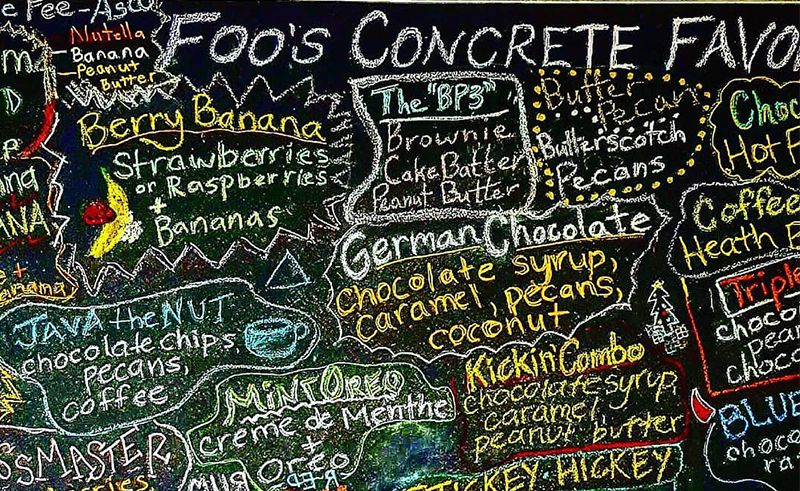 Fee-Asco
Nutella
Banana
Peanut
Butter
FOO'S CONCRETE FAVO
Berry Banana
Strawberries
or Raspberries
+
Bananas
The "BP3"
Brownie
Cake Batter
Peanut Butter
Butter
Pecan
Butterscotch
Pecans
Choc
Hot F
German Chocolate
chocolate syrup,
caramel, pecans,
coconut
Coffee
Heath B
Triple
choco
pea
choco
JAVA the NUT
chocolate chips
pecans,
coffee
Mint Oreo
creme de Menthe
+
Oreo
Kickin' Combo
chocolate syrup,
caramel,
peanut butter
BLUE
choco
ra
SSMASTER
erries
STICKEY HICKEY